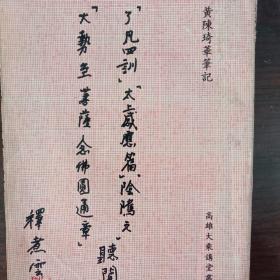 黃陳琦華筆記
高雄大乘講堂
「了凡四訓」「太上感應篇」陰隲文
聽聞
「大勢至菩薩念佛圓通章」
釋煮雲